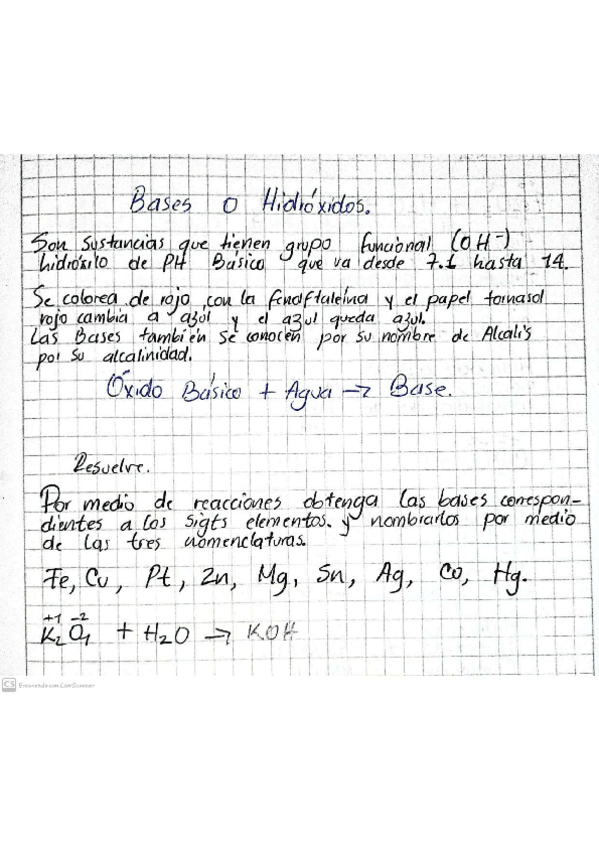 Bases o Hidróxidos.
Son sustancias que tienen grupo funcional (OH-)
hidrósilo de PH Básico que va desde 7.1 hasta 14.
Se colorea de rojo con la fenoftaleína y el papel tornasol
rojo cambia a azúl y el azul queda azul.
Las Bases también se conocen por su nombre de Alcalis
por su alcalinidad.
Óxido Básico + Agua → Base.
Resuelve.
Por medio de reacciones obtenga las bases correspon-
dientes a los sigts elementos. y nombrarlos por medio
de las tres nomenclaturas.
Fe, Cu, Pt, Zn, Mg, Sn, Ag, Co, Hg.
+1 -2
K2O1 + H2O → KOH
CS Escaneado con CamScanner